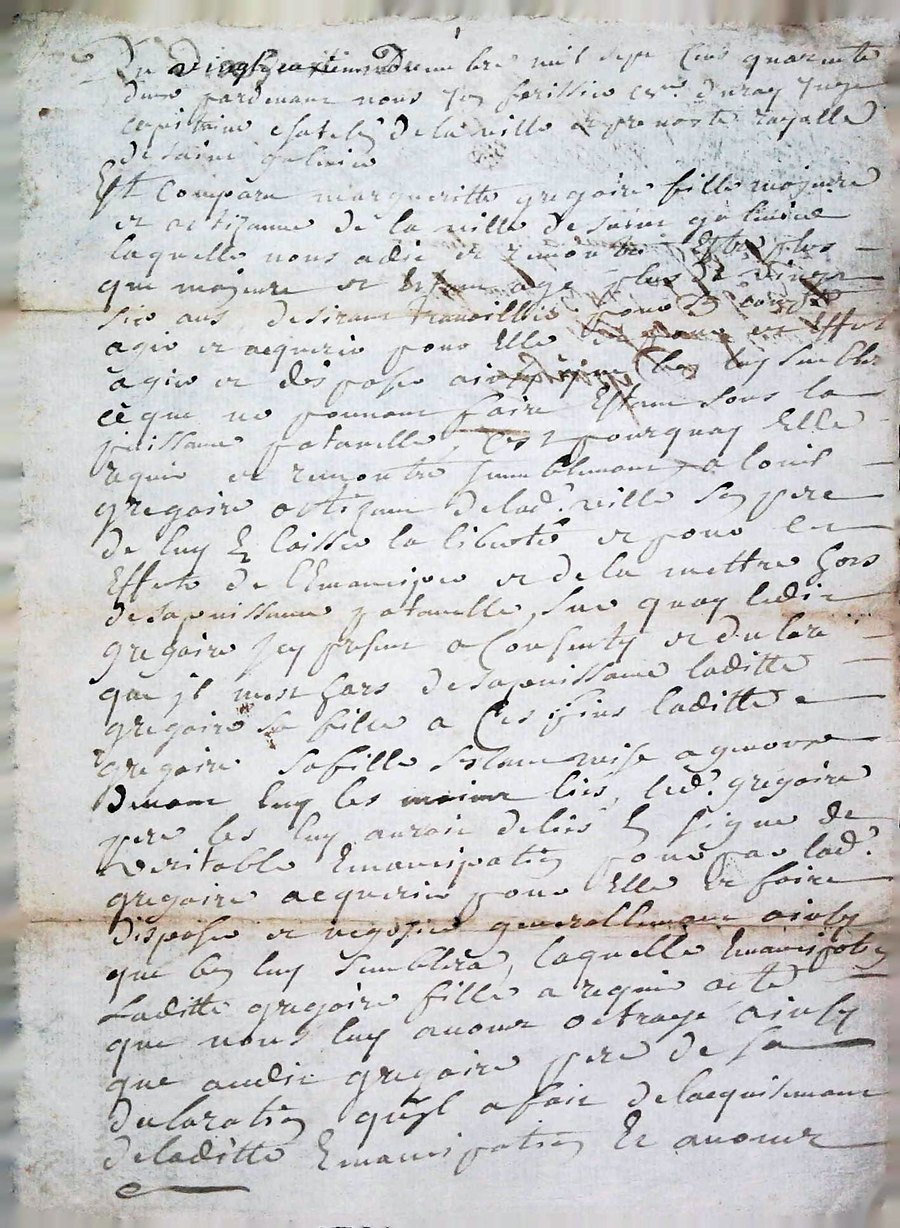 Du vingt deuxieme decembre mil sept cens quarente
deux pardevant nous Jea ferissier duroy Juge
capitaine chatelain de la ville et prevosté rayalle
de saint galmier
Est Compâru margueritte gregoire fille majeure
et artizanne de la ville de saint galmier
laquelle nous a dit et remontré plus
que majeure et agé plus de vingt
six ans desirant travailler pour
agir et acquerir pour Elle et effet
agir et disposer ainsi que bon luy semblera
cè que ne pouvant faire Estant sous la
puissance patarnelle, C'est pourquoy Elle
requis et remontre humblement a louis
gregoire artizant delad. ville son pere
de luy En laisser la liberté et pour cet
Effet de l'Emanciper et de la mettre hors
desapuissance patarnelle, sur quoy ledit
gregoire Jcy present a Consenty et declaré
que jl met hors desapuissance laditte
gregoire sa fille a Ces fins laditte
gregoire sa fille s'estant mise a genoux
devant luy les mains liés, led. gregoire
pere les luy auroit deliés En signe de
veritable Emancipation pour par lad.
gregoire acquerir pour Elle et faire
disposer et negosier generallement ainsy
que bon luy semblera, laquelle Emancipation
Laditte gregoire fille a requis acte
que nous luy avons octroyé ainsy
que audit gregoire pere de sa
declaration qu'jl a fait delacquisemant
deladitte Emancipation Et avons